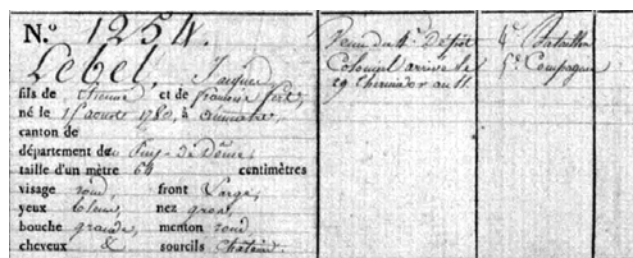 N.º 1254.
Lebel, Jacques
fils de Etienne et de françoise
né le 15 aoust 1780, à
canton de
département du Puy-de-Dôme,
taille d'un mètre 64 centimètres
visage rond, front Large,
yeux bleux, nez gros,
bouche grande, menton rond,
cheveux & sourcils Chatains.
Venu du 4.e Dépôt
Colonial arrivé le
29 Thermidor an 11.
4.e Bataillon
5.e Compagnie